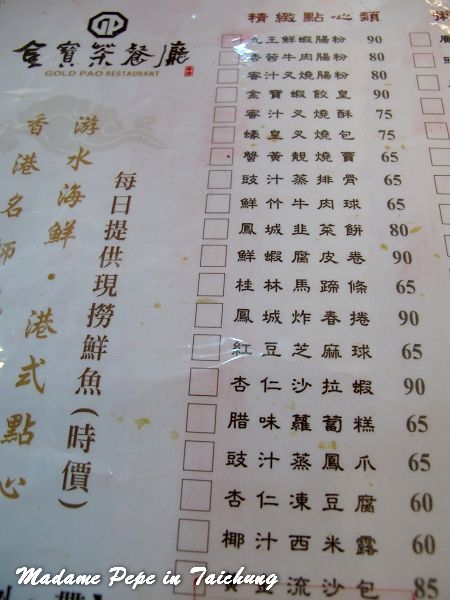 金寶茶餐廳
GOLD PAO RESTAURANT
游水海鮮・港式點心
香港名師
每日提供現撈鮮魚(時價)
精緻點心類
王鮮蝦腸粉 90
香茜牛肉腸粉 80
蜜汁叉燒腸粉 80
金寶蝦餃皇 90
蜜汁叉燒酥 75
蠔皇叉燒包 75
蟹黃靚燒賣 65
豉汁蒸排骨 65
鮮竹牛肉球 65
鳳城韭菜餅 80
鮮蝦腐皮卷 90
桂林馬蹄條 65
鳳城炸春捲 90
紅豆芝麻球 65
杏仁沙拉蝦 90
腊味蘿蔔糕 65
豉汁蒸鳳爪 65
杏仁凍豆腐 60
椰汁西米露 60
黃金流沙包 85
Madame Pepe in Taichung